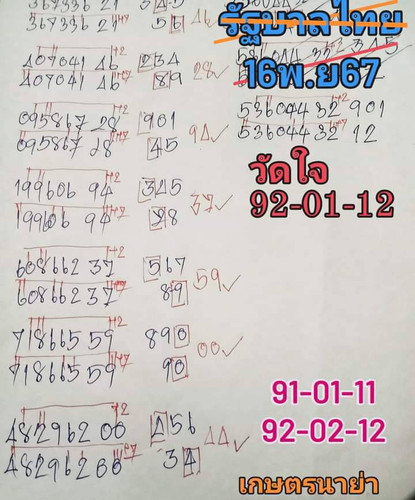 367336 21 345
367336 21 +7 56 46
รัฐบาลไทย
16พ.ย67
407041 46 +2 234
407041 46 +7 89 28✓
095867 28 +2 901
095867 28 +7 45 94✓
536044 32 +2 901
536044 32 +7 12
วัดใจ
92-01-12
199606 94 +2 345
199606 94 +7 28 37✓
608662 37 +2 567
608662 37 +7 89 59✓
718665 59 +2 890
718665 59 +7 90 00✓
91-01-11
92-02-12
482962 00 +2 256
482962 00 +7 34 44✓
เกษตรนาย่า